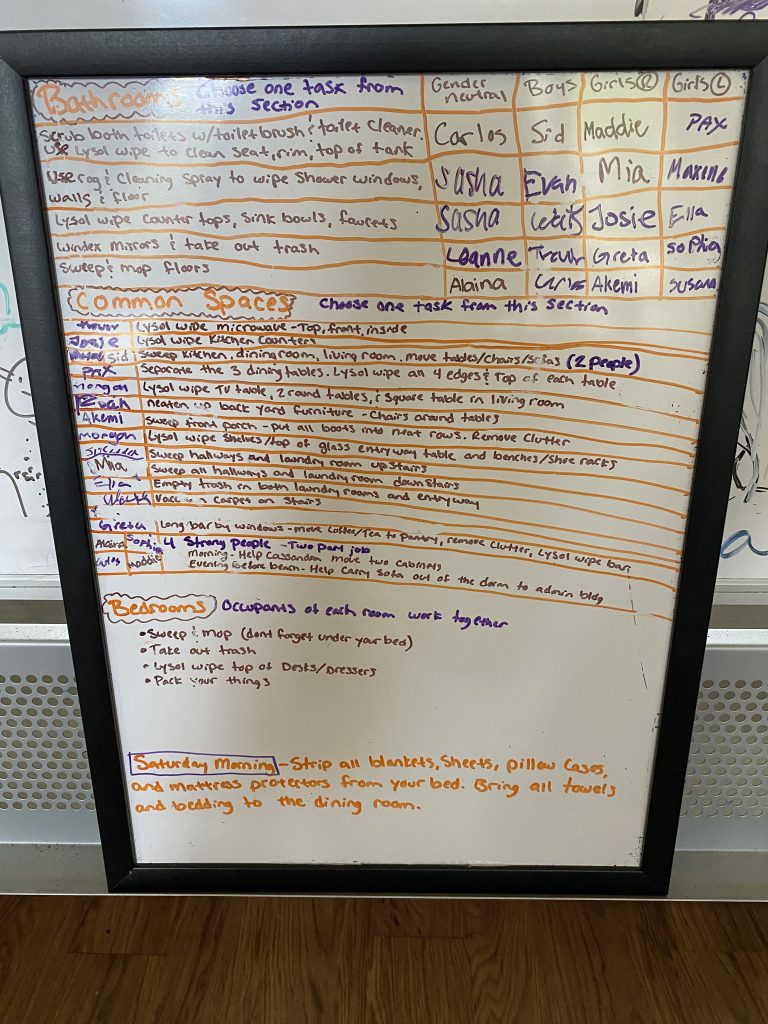 Bathrooms Choose one task from this section
Gender neutral Boys Girls(R) Girls(L)
Scrub both toilets w/toilet brush & toilet cleaner.
Use Lysol wipe to clean seat, rim, top of tank
Carlos Sid Maddie PAX
Use rag & cleaning spray to wipe shower windows,
walls & floor
Sasha Evan Mia Maxine
Lysol wipe counter tops, sink bowls, faucets
Sasha Josie Ella
Windex mirrors & take out trash
Leanne Greta Sophia
Sweep & mop floors
Alaina Akemi Susana
Common Spaces Choose one task from this section
Trevor Lysol wipe microwave - Top, front, inside
Josie Lysol wipe Kitchen Counters
Sid Sweep kitchen, dining room, living room. move tables/chairs/sofas (2 people)
Pax Separate the 3 dining tables. Lysol wipe all 4 edges & Top of each table
Morgan Lysol wipe TV table, 2 round tables, & Square table in living room
Evan neaten up back yard furniture - Chairs around tables
Akemi Sweep front porch - put all boots into neat rows. Remove clutter
Morgan Lysol wipe shelves/top of glass entryway table and benches/shoe racks
Sweep hallways and laundry room upstairs
Mia Sweep all hallways and laundry room downstairs
Ella Empty trash in both laundry rooms and entryway
carpet on stairs
Greta Long bar by windows - move coffee/Tea to pantry, remove clutter, Lysol wipe bar.
Alaina Sophia 4 Strong people - Two part job
Carlos Maddie Morning - Help Cassandra move two cabinets
Evening before beach - Help carry sofa out of the dorm to admin bldg
Bedrooms Occupants of each room work together
• Sweep & mop (dont forget under your bed)
• Take out trash
• Lysol wipe top of Desks/Dressers
• Pack your things
Saturday Morning - Strip all blankets, sheets, pillow cases,
and mattress protectors from your bed. Bring all towels
and bedding to the dining room.